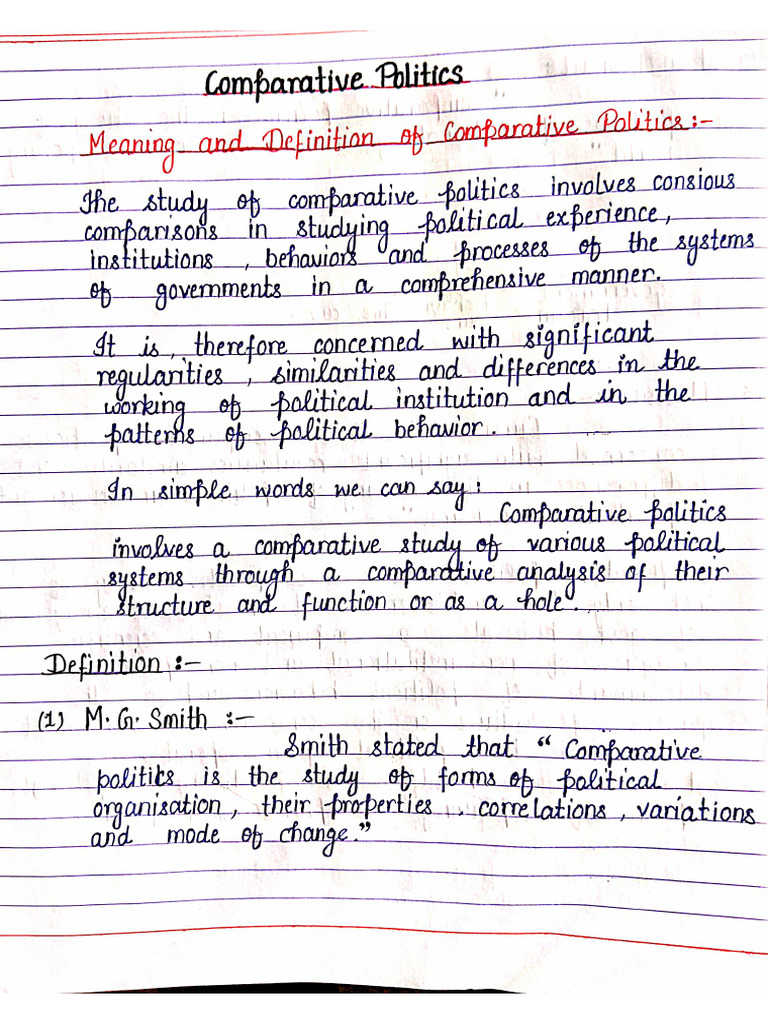 Comparative Politics
Meaning and Definition of Comparative Politics:-
The study of comparative politics involves consious
comparisons in studying political experience,
institutions, behaviors and processes of the systems
of governments in a comprehensive manner.
It is, therefore concerned with significant
regularities, similarities and differences in the
working of political institution and in the
patterns of political behavior.
In simple words we can say:
Comparative politics
involves a comparative study of various political
systems through a comparative analysis of their
structure and function or as a hole.
Definition :-
(1) M. G. Smith :-
Smith stated that "Comparative
politics is the study of forms of political
organisation, their properties, correlations, variations
and mode of change."